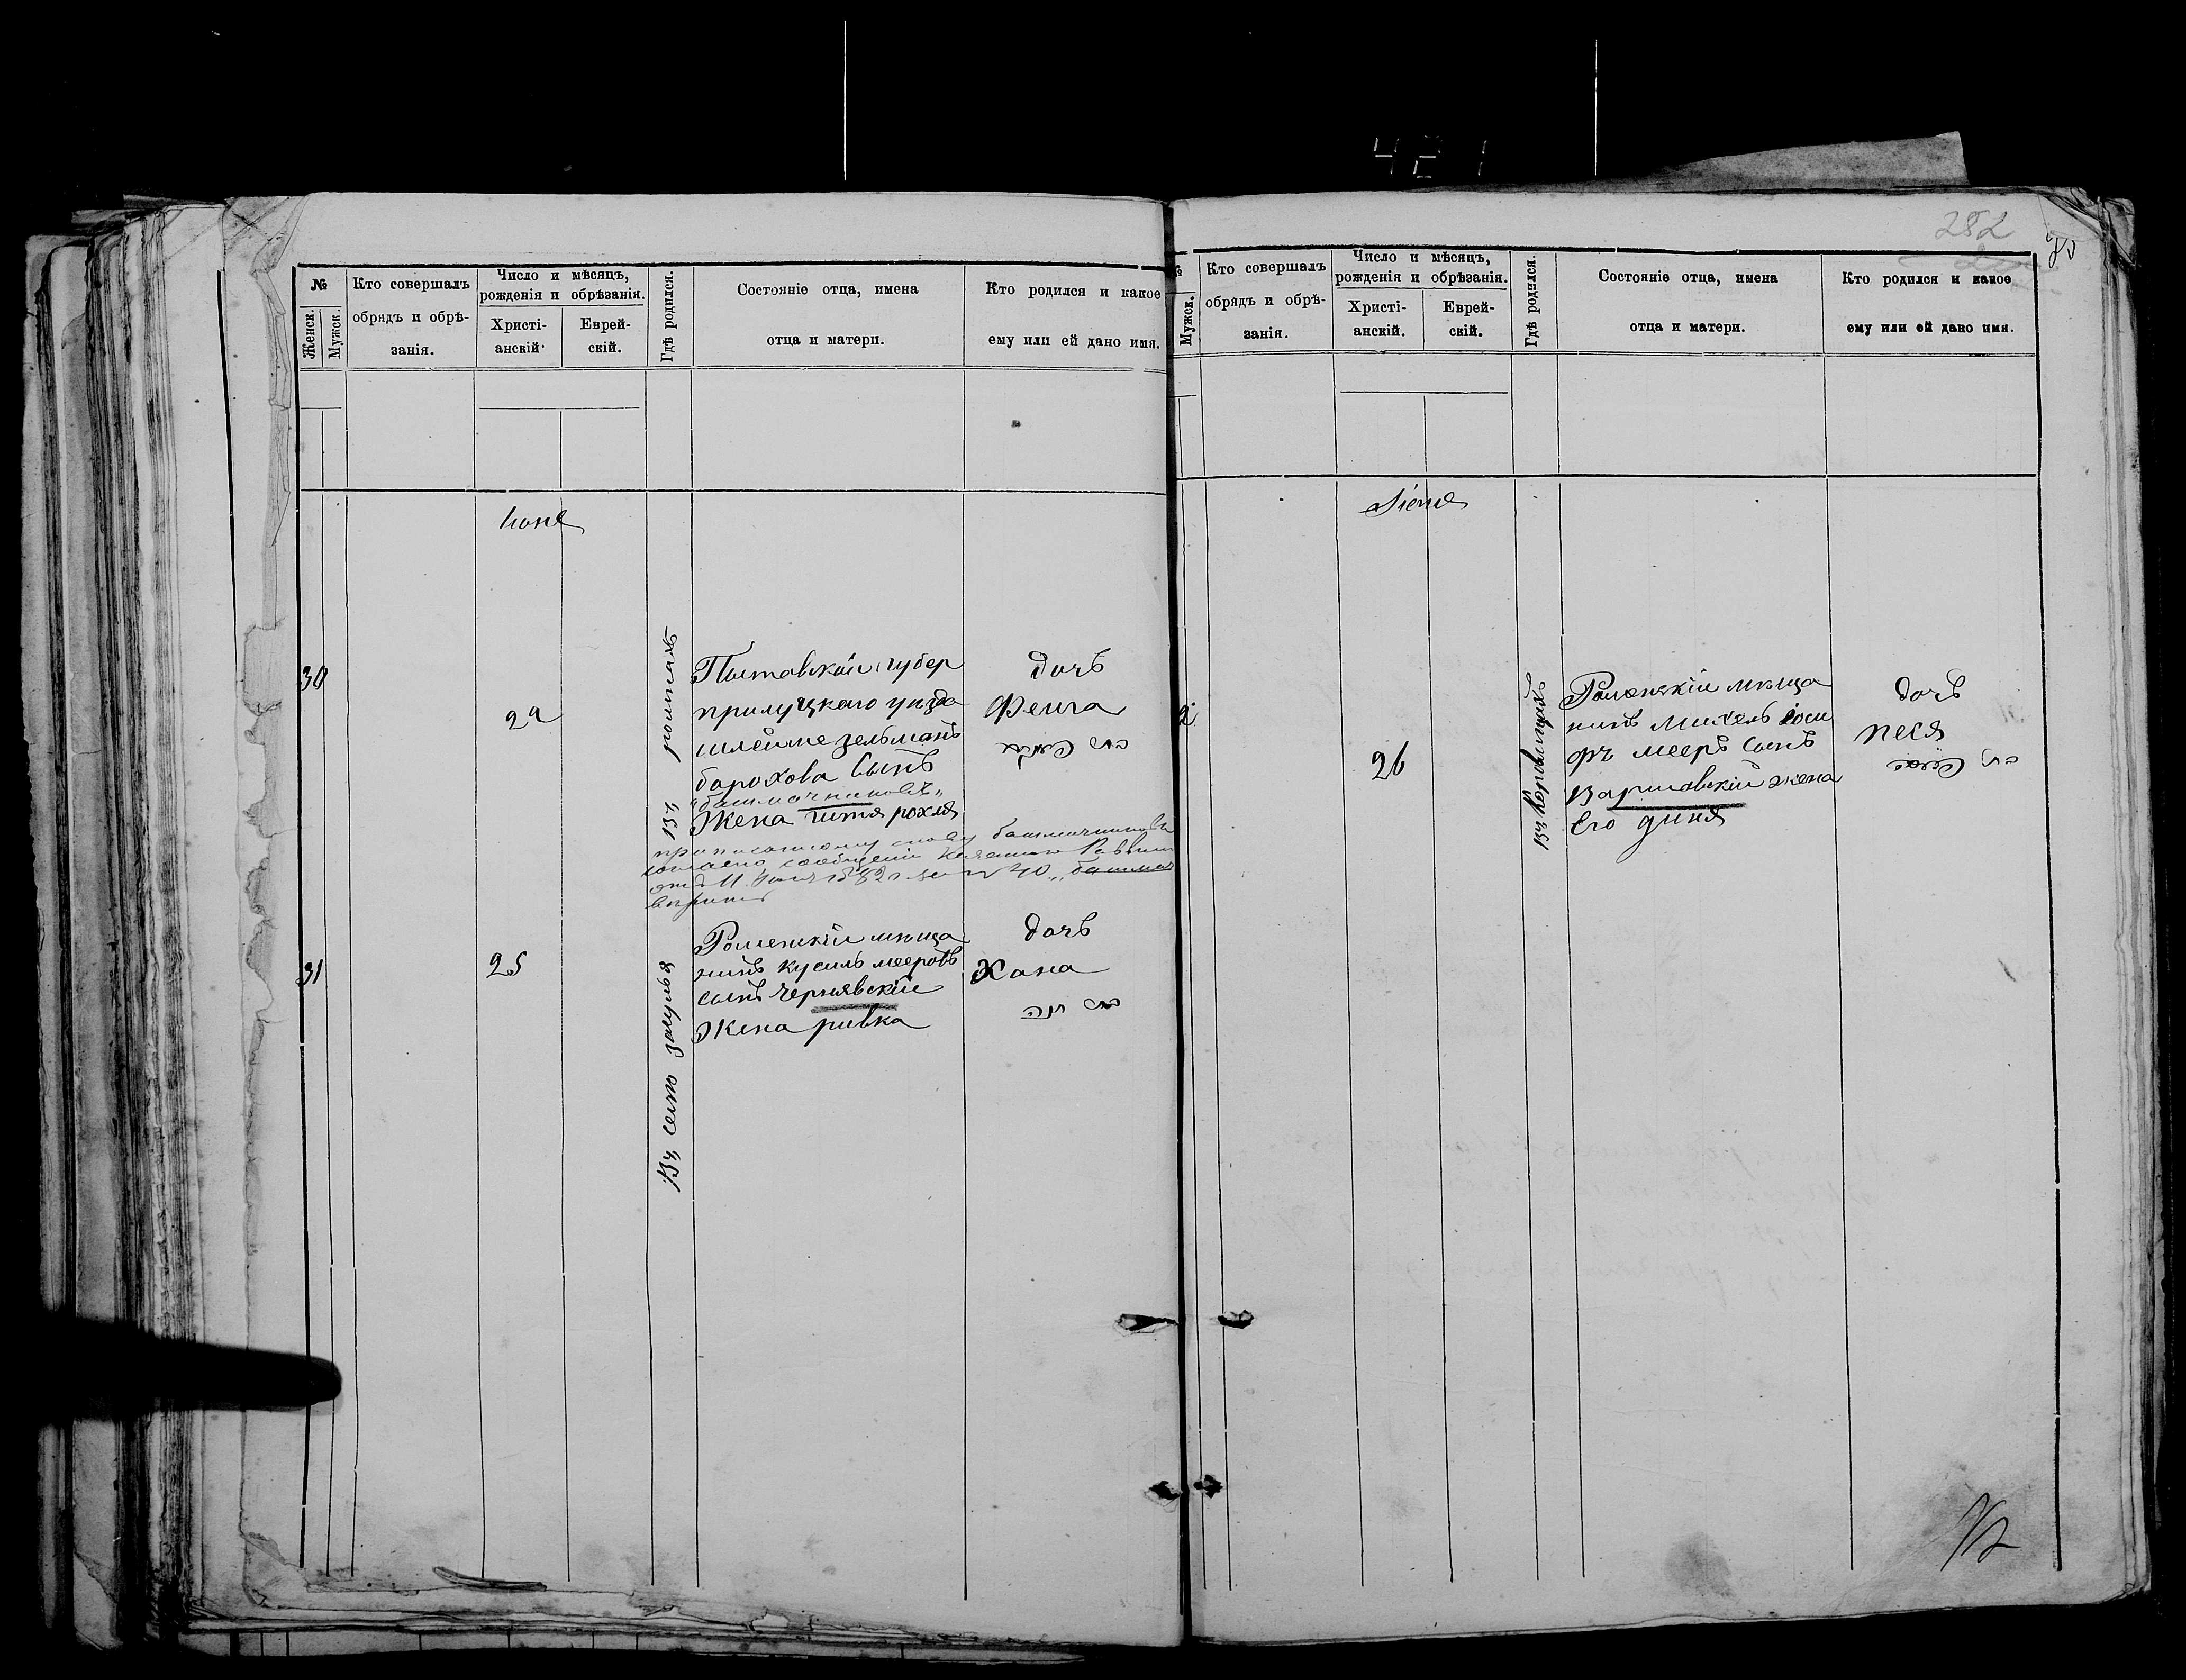 421
282
№
Женск.
Мужск.
Кто совершалъ
обрядъ и обрѣ-
занія.
Число и мѣсяцъ,
рожденія и обрѣзанія.
Христі-
анскій.
Еврей-
скій.
Гдѣ родился.
Состояніе отца, имена
отца и матери.
Кто родился и какое
ему или ей дано имя.
30
въ ромнахъ
Полтавской губер
прилуцкаго уезда
шлейме зельманъ
барохова сынъ
"башмачниковъ"
Жена рохля
дочь
Фейга
31
25
Въ село
Роменский меща
нинъ кусиль мееровъ
сынъ Чернявскій
Жена ривка
дочь
Хана
חנה
№
Мужск.
Кто совершалъ
обрядъ и обрѣ-
занія.
Число и мѣсяцъ,
рожденія и обрѣзанія.
Христі-
анскій.
Еврей-
скій.
Гдѣ родился.
Состояніе отца, имена
отца и матери.
Кто родился и какое
ему или ей дано имя.
26
Роменскій меща
нинъ михель іоси
фъ мееръ сынъ
Варшавскій жена
Его диня
дочь
песя